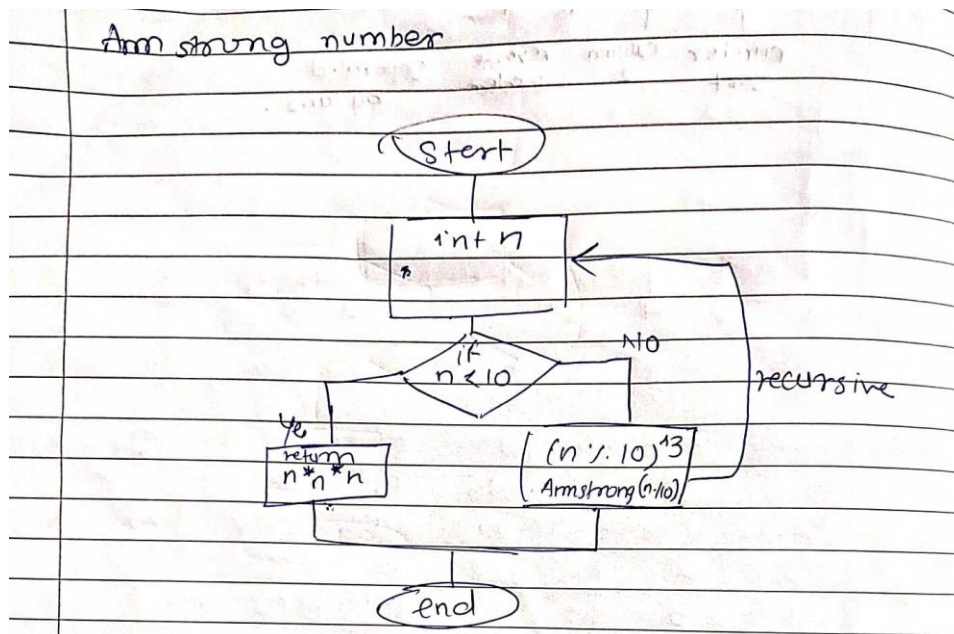 Armstrong number
Start
int n
if
n < 10
NO
recursive
Yes
return
n * n * n
(n % 10)^3
Armstrong(n/10)
end